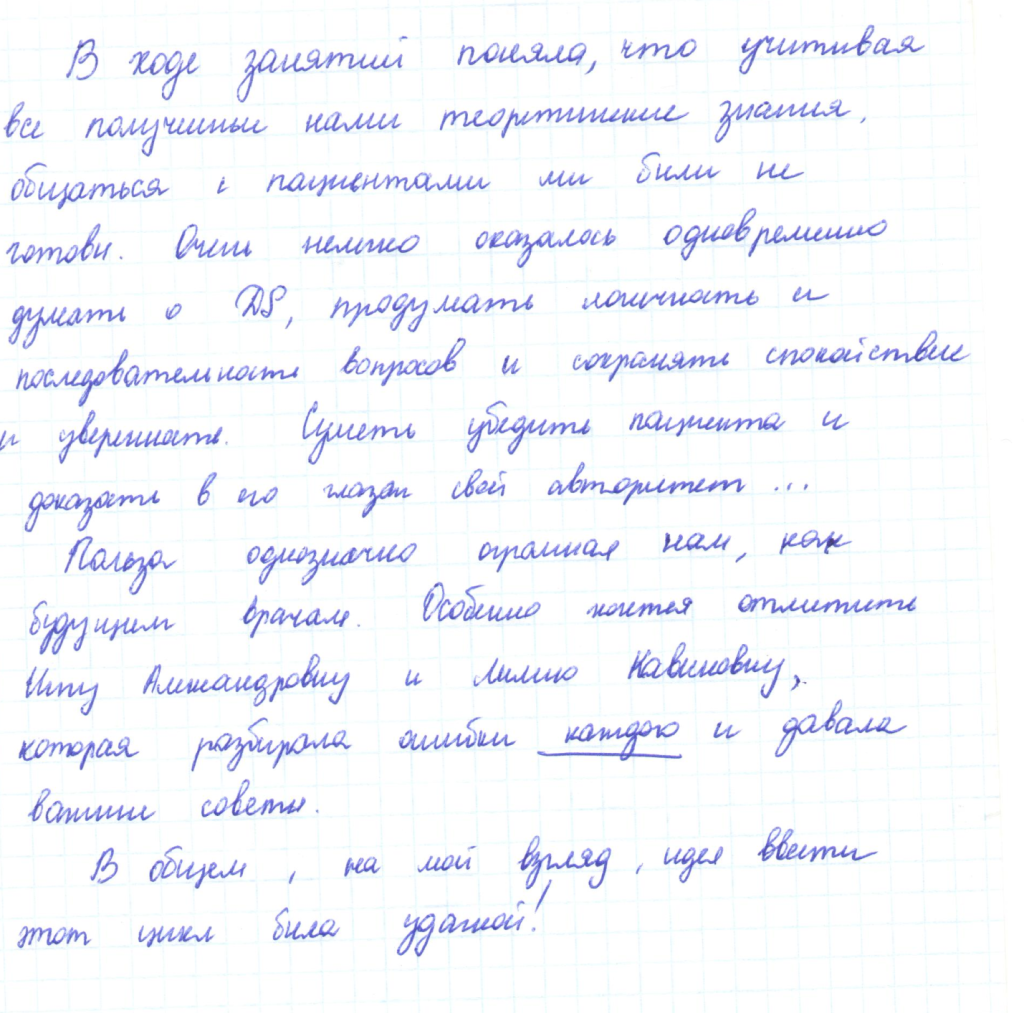 В ходе занятий поняла, что учитивая
все полученные нами теоретические знания,
общаться с пациентами ми били не
готови. Очень нелегко оказалось одновременно
думать о DS, продумать логичность и
последовательность вопросов и сохранять спокойствие
и уверенность. Суметь убедить пациента и
доказать в его глазах свой авторитет ...
Польза однозначно огромная нам, как
будущим врачам. Особенно хочется отметить
Инну Александровну и Лилию
которая разбирала ошибки каждого и давала
важние совети.
В общем, на мой взгляд, идея ввести
этот цикл била удачной!